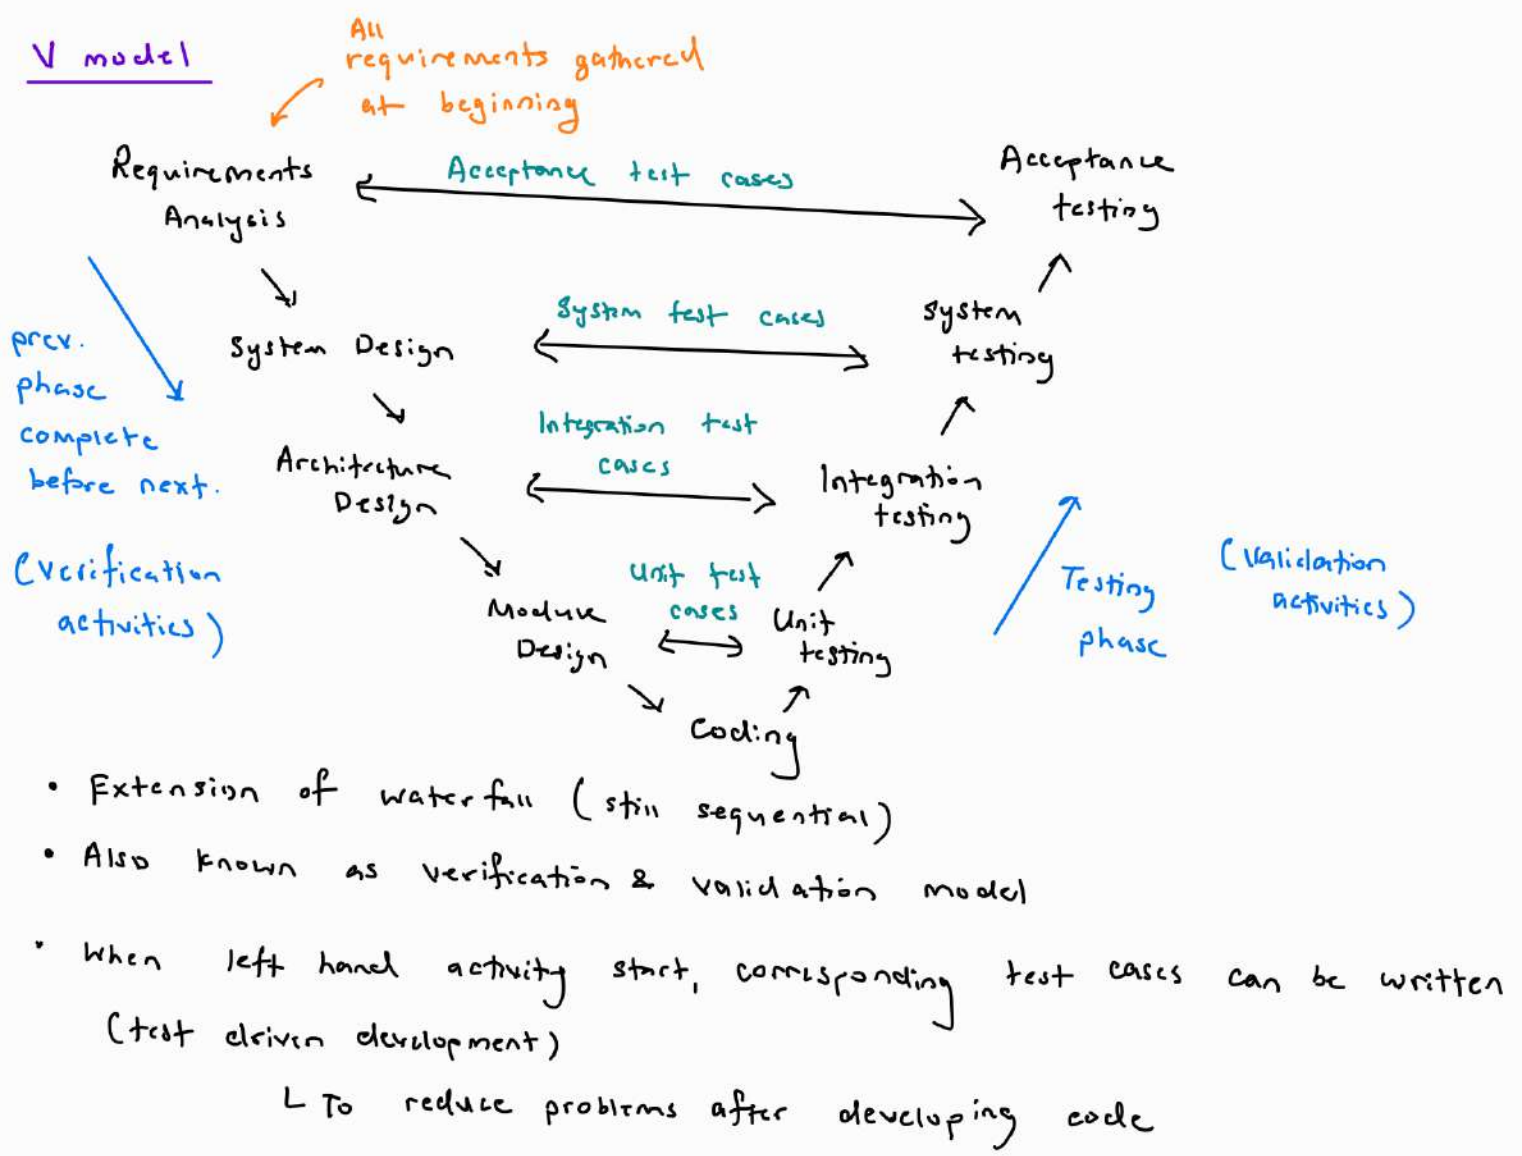 V model
All
requirements gathered
at beginning
Requirements
Analysis
Acceptance test cases
Acceptance
testing
prev.
phase
complete
before next.
(verification
activities)
System Design
System test cases
System
testing
Architecture
Design
Integration test
cases
Integration
testing
Module
Design
Unit test
cases
Unit
testing
Testing
phase
(validation
activities)
Coding
• Extension of waterfall (still sequential)
• Also known as verification & validation model
• When left hand activity start, corresponding test cases can be written
(test driven development)
↳ To reduce problems after developing code